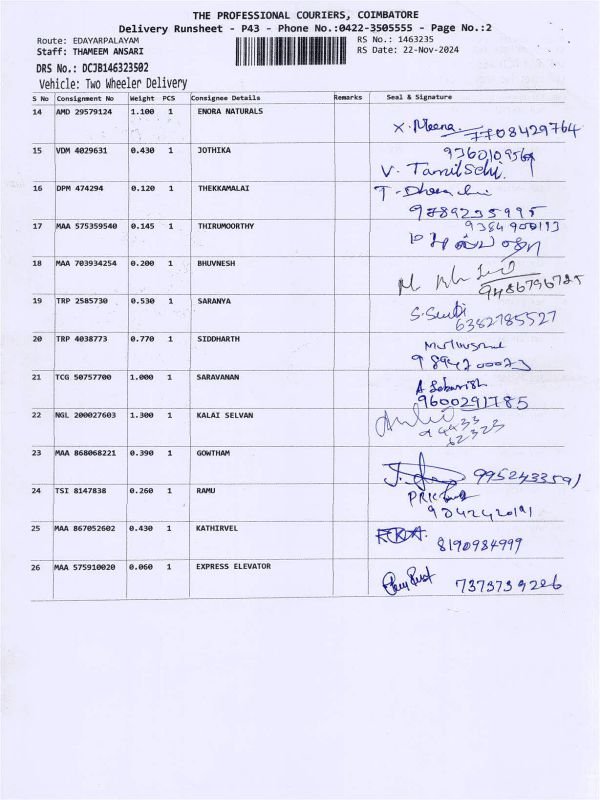 THE PROFESSIONAL COURIERS, COIMBATORE
Delivery Runsheet - P43 - Phone No.:0422-3505555 - Page No.:2
Route: EDAYARPALAYAM RS No.: 1463235
Staff: THAMEEM ANSARI RS Date: 22-Nov-2024
DRS No.: DCJB146323502
Vehicle: Two Wheeler Delivery
S No Consignment No Weight PCS Consignee Details Remarks Seal & Signature
14 AMD 29579124 1.100 1 ENORA NATURALS
X. Meena 7708429764
15 VDM 4029631 0.430 1 JOTHIKA
V. Tamil Selvi
16 DPM 474294 0.120 1 THEKKAMALAI
9789235995
17 MAA 575359540 0.145 1 THIRUMOORTHY
18 MAA 703934254 0.200 1 BHUVNESH
9486796785
19 TRP 2585730 0.530 1 SARANYA
6382785527
20 TRP 4038773 0.770 1 SIDDHARTH
9894200023
21 TCG 50757700 1.000 1 SARAVANAN
9600291785
22 NGL 200027603 1.300 1 KALAI SELVAN
94433
62325
23 MAA 868068221 0.390 1 GOWTHAM
9952433591
24 TSI 8147838 0.260 1 RAMU
9042420191
25 MAA 867052602 0.430 1 KATHIRVEL
8190984999
26 MAA 575910020 0.060 1 EXPRESS ELEVATOR
7373739226